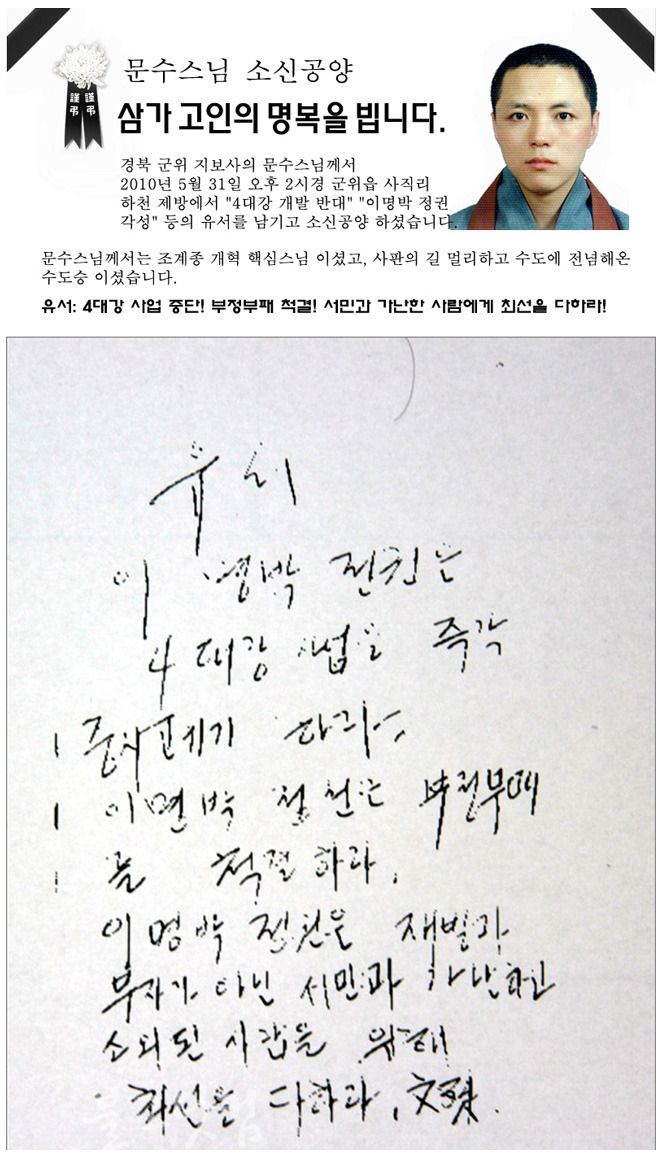 謹弔 謹弔
문수스님 소신공양
삼가 고인의 명복을 빕니다.
경북 군위 지보사의 문수스님께서
2010년 5월 31일 오후 2시경 군위읍 사직리
하천 제방에서 "4대강 개발 반대" "이명박 정권
각성" 등의 유서를 남기고 소신공양 하셨습니다.
문수스님께서는 조계종 개혁 핵심스님 이셨고, 사판의 길 멀리하고 수도에 전념해온
수도승 이셨습니다.
유서: 4대강 사업 중단! 부정부패 척결! 서민과 가난한 사람에게 최선을 다하라!
유서
이명박 정권은
4대강 사업을 즉각
중지 포기 하라.
이명박 정권은 부정부패
를 척결하라.
이명박 정권은 재벌과
부자가 아닌 서민과 가난하고
소외된 사람을 위해
최선을 다하라. 文殊.